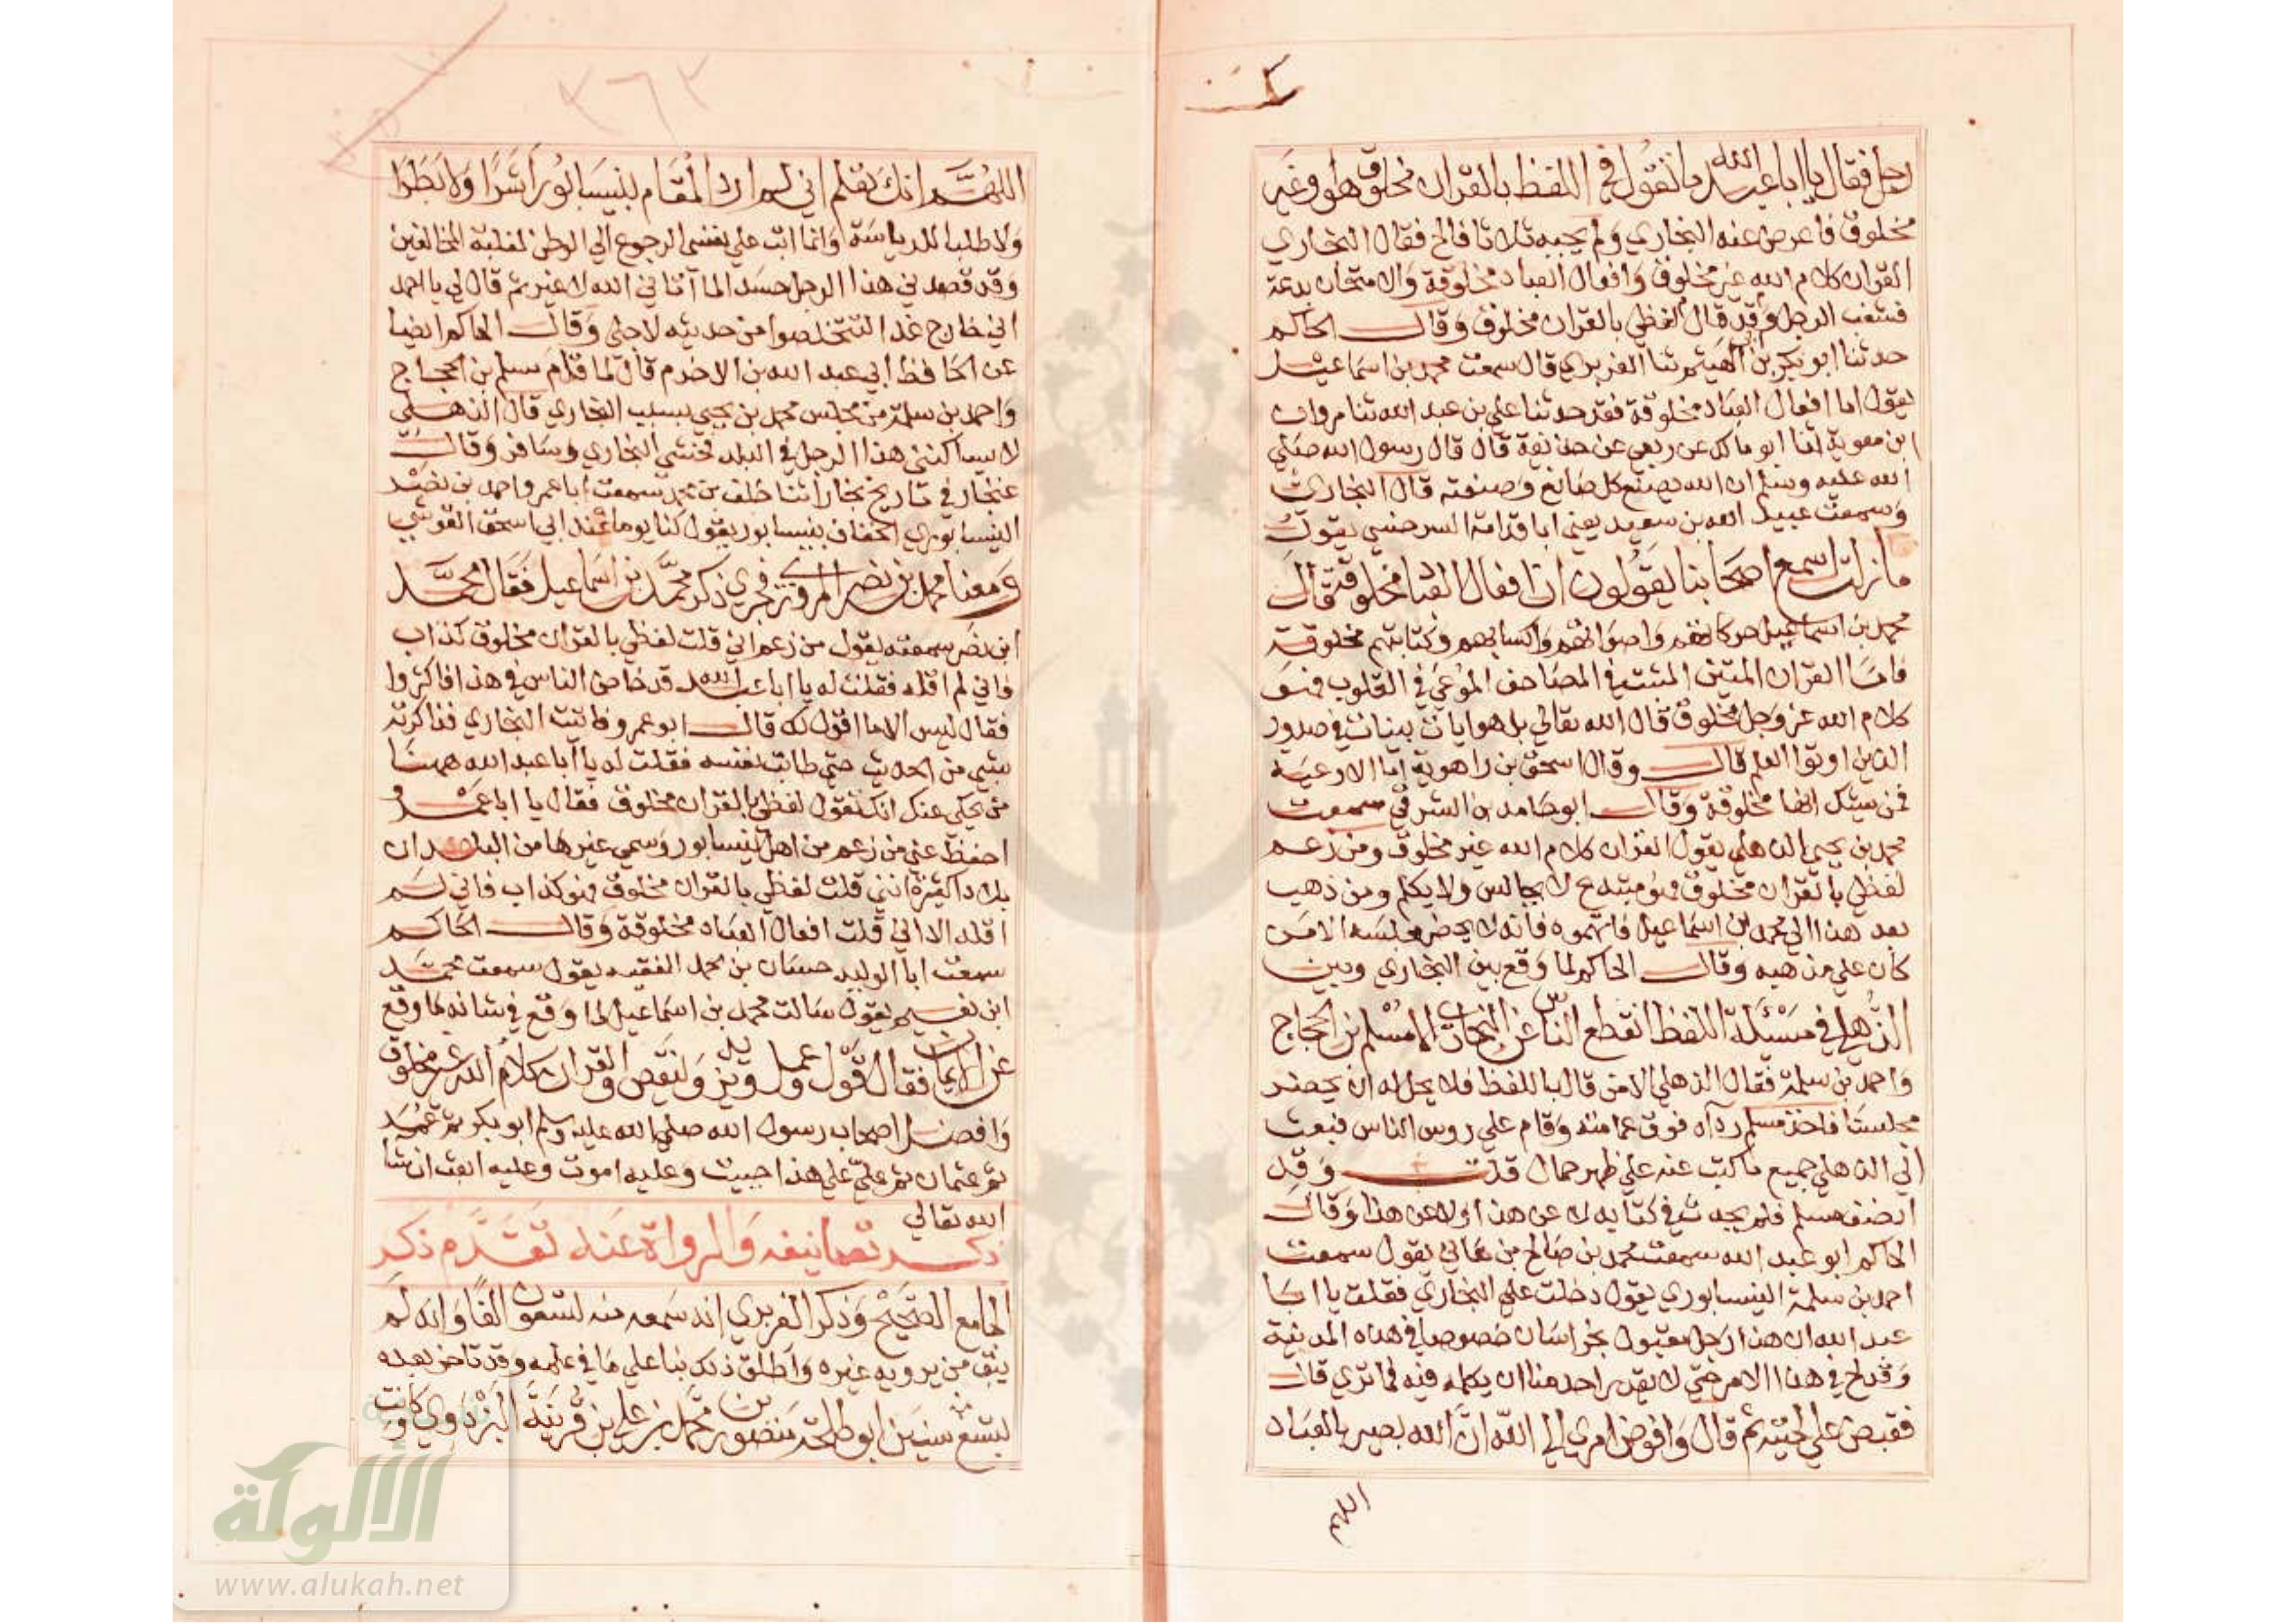 رجل فقال يا ابا عبد الله ما تقول في اللفظ بالقران مخلوق هو او غير
مخلوق فاعرض عنه البخاري ولم يجبه ثلاثا فالح فقال البخاري
القران كلام الله غير مخلوق وافعال العباد مخلوقة والامتحان بدعة
فشغب الرجل وقد قال لفظي بالقران مخلوق وقال الحاكم
حدثنا ابو بكر بن الهيثم ثنا الفربري قال سمعت محمد بن اسماعيل
يقول اما افعال العباد مخلوقة فقد حدثنا علي بن عبد الله ثنا مروان
ابن معوية ثنا ابو مالك عن ربعي عن حذيفة قال قال رسول الله صلي
الله عليه وسلم ان الله يصنع كل صانع وصنعته قال البخاري
وسمعت عبيد الله بن سعيد يعني ابا قدامة السرخسي يقول
ما زلت اسمع اصحابنا يقولون ان افعال العباد مخلوقة قال
محمد بن اسماعيل حركاتهم واصواتهم واكسابهم وكتابتهم مخلوقة
فاما القران المبين المثبت في المصاحف الموعي في القلوب فهو
كلام الله عز وجل مخلوق قال الله تعالي بل هو ايات بينات في صدور
الذين اوتوا العلم قال وقال اسحق بن راهوية اما الاوعية
فمن يشك انها مخلوقة وقال ابو حامد بن الشرقي سمعت
محمد بن يحيي الذهلي يقول القران كلام الله غير مخلوق ومن زعم
لفظي بالقران مخلوق فهو مبتدع لا يجالس ولا يكلم ومن ذهب
بعد هذا الي محمد بن اسماعيل فاتهموه فانه لا يحضر مجلسه الا من
كان علي مذهبه وقال الحاكم لما وقع بين البخاري وبين
الذهلي في مسئلة اللفظ انقطع الناس عن البخاري الا مسلم بن الحجاج
واحمد بن سلمة فقال الذهلي الا من قال باللفظ فلا يحل له ان يحضر
مجلسنا فاخذ مسلم رداه فوق عمامته وقام علي روس الناس فبعث
الي الذهلي جميع ما كتب عنه علي ظهر حمال قلت وقد
انصف مسلم فلم يحدث في كتابه لا عن هذا ولا عن هذا وقال
الحاكم ابو عبد الله سمعت محمد بن صالح بن هاني يقول سمعت
احمد بن سلمة النيسابوري يقول دخلت علي البخاري فقلت يا ابا
عبد الله ان هذا رجل مقبول بخراسان خصوصا في هذه المدينة
وقد لح في هذا الامر حتي لا يقدر احد منا ان يكلمه فيه فما تري قال
فقبض علي لحيته ثم قال وافوض امري الي الله ان الله بصير بالعباد
اللهم
٣٦٣
اللهم انك تعلم اني لم ارد المقام بنيسابور اشرا ولا بطرا
ولا طلبا للرياسة وانما ابت علي نفسي الرجوع الي الوطن لغلبة المخالفين
وقد قصدني هذا الرجل حسدا لما آتاني الله لا غير ثم قال لي يا احمد
اني خارج غدا لتتخلصوا من حديثه لاجلي وقال الحاكم ايضا
عن الحافظ ابي عبد الله بن الاخرم قال لما قام مسلم بن الحجاج
واحمد بن سلمة من مجلس محمد بن يحيي بسبب البخاري قال الذهلي
لا يساكنني هذا الرجل في البلد فخشي البخاري وسافر وقال
غنجار في تاريخ بخارا ثنا خلف بن محمد سمعت ابا عمرو احمد بن نصر
النيسابوري الخفاف بنيسابور يقول كنا يوما عند ابي اسحق القرشي
ومعنا محمد بن نصر المروزي فجري ذكر محمد بن اسماعيل فقال محمد
ابن نصر سمعته يقول من زعم اني قلت لفظي بالقران مخلوق كذاب
فاني لم اقله فقلت له يا ابا عبد الله قد خاض الناس في هذا فاكثروا
فقال ليس الا ما اقول لك قال ابو عمرو فاتيت البخاري فذاكرته
بشي من الحديث حتي طابت نفسه فقلت له يا ابا عبد الله ههنا
من يحكي عنك انك تقول لفظي بالقران مخلوق فقال يا ابا عمرو
احفظ عني من زعم من اهل نيسابور وسمي غيرها من البلدان
بلادا كثيرة انني قلت لفظي بالقران مخلوق فهو كذاب فاني لم
اقله الا اني قلت افعال العباد مخلوقة وقال الحاكم
سمعت ابا الوليد حسان بن محمد الفقيه يقول سمعت محمد
ابن نعيم يقول سالت محمد بن اسماعيل لما وقع في شانه ما وقع
عن الايمان فقال قول وعمل ويزيد وينقص والقران كلام الله غير مخلوق
وافضل اصحاب رسول الله صلي الله عليه وسلم ابو بكر ثم عمر
ثم عثمان ثم علي علي هذا حييت وعليه اموت وعليه ابعث ان شا
الله تعالي
ذكر تصانيفه والرواة عنه تقدم ذكر
الجامع الصحيح وذكر الفربري انه سمعه منه تسعون الفا وانه لم
يبق من يرويه غيره واطلق ذلك بنا علي ما في علمه وقد تاخر بعده
بتسع سنين ابو طلحة منصور بن محمد بن علي بن قرينة البزدوي وكانت
الألوكة
www.alukah.net